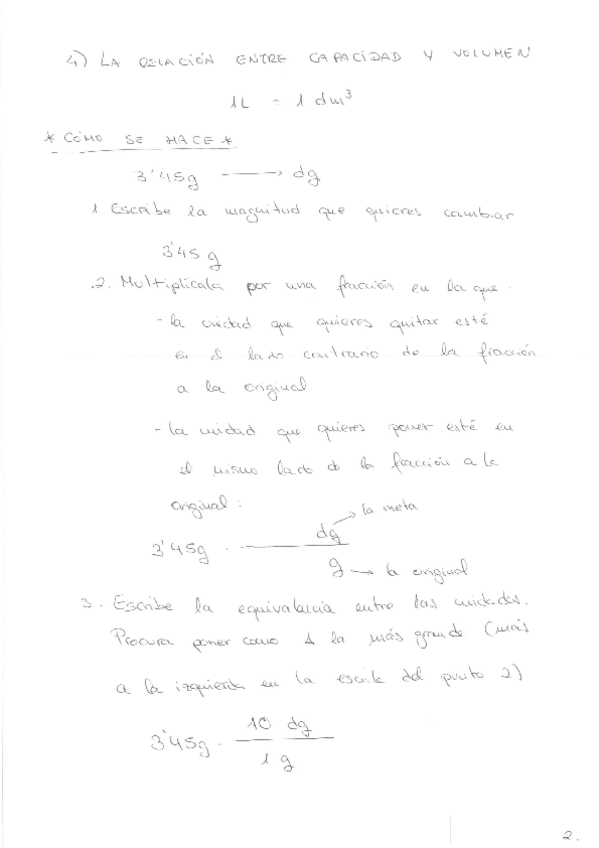 4) LA RELACIÓN ENTRE CAPACIDAD Y VOLUMEN
1L = 1 dm³
* CÓMO SE HACE *
3'45g → dg
1 Escribe la magnitud que quieres cambiar
3'45 g
.2. Multiplícala por una fracción en la que
- la unidad que quieres quitar esté
en el lado contrario de la fracción
a la original
- la unidad que quieres poner esté en
el mismo lado de la fracción a la
original:
dg → la meta
3'45g · ———
g → la original
3. Escribe la equivalencia entre las unidades.
Procura poner como 1 la más grande (más
a la izquierda en la escala del punto 2)
10 dg
3'45g · ———
1 g
2.